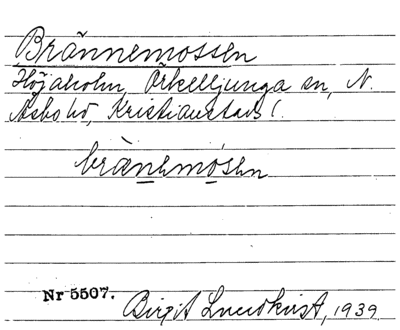 Brännemossen
Höjaholm, Örkelljunga sn, N.
Åsbo hd, Kristianstads l.
brànemósen
Nr 5507.
Birgit Lundkvist, 1939